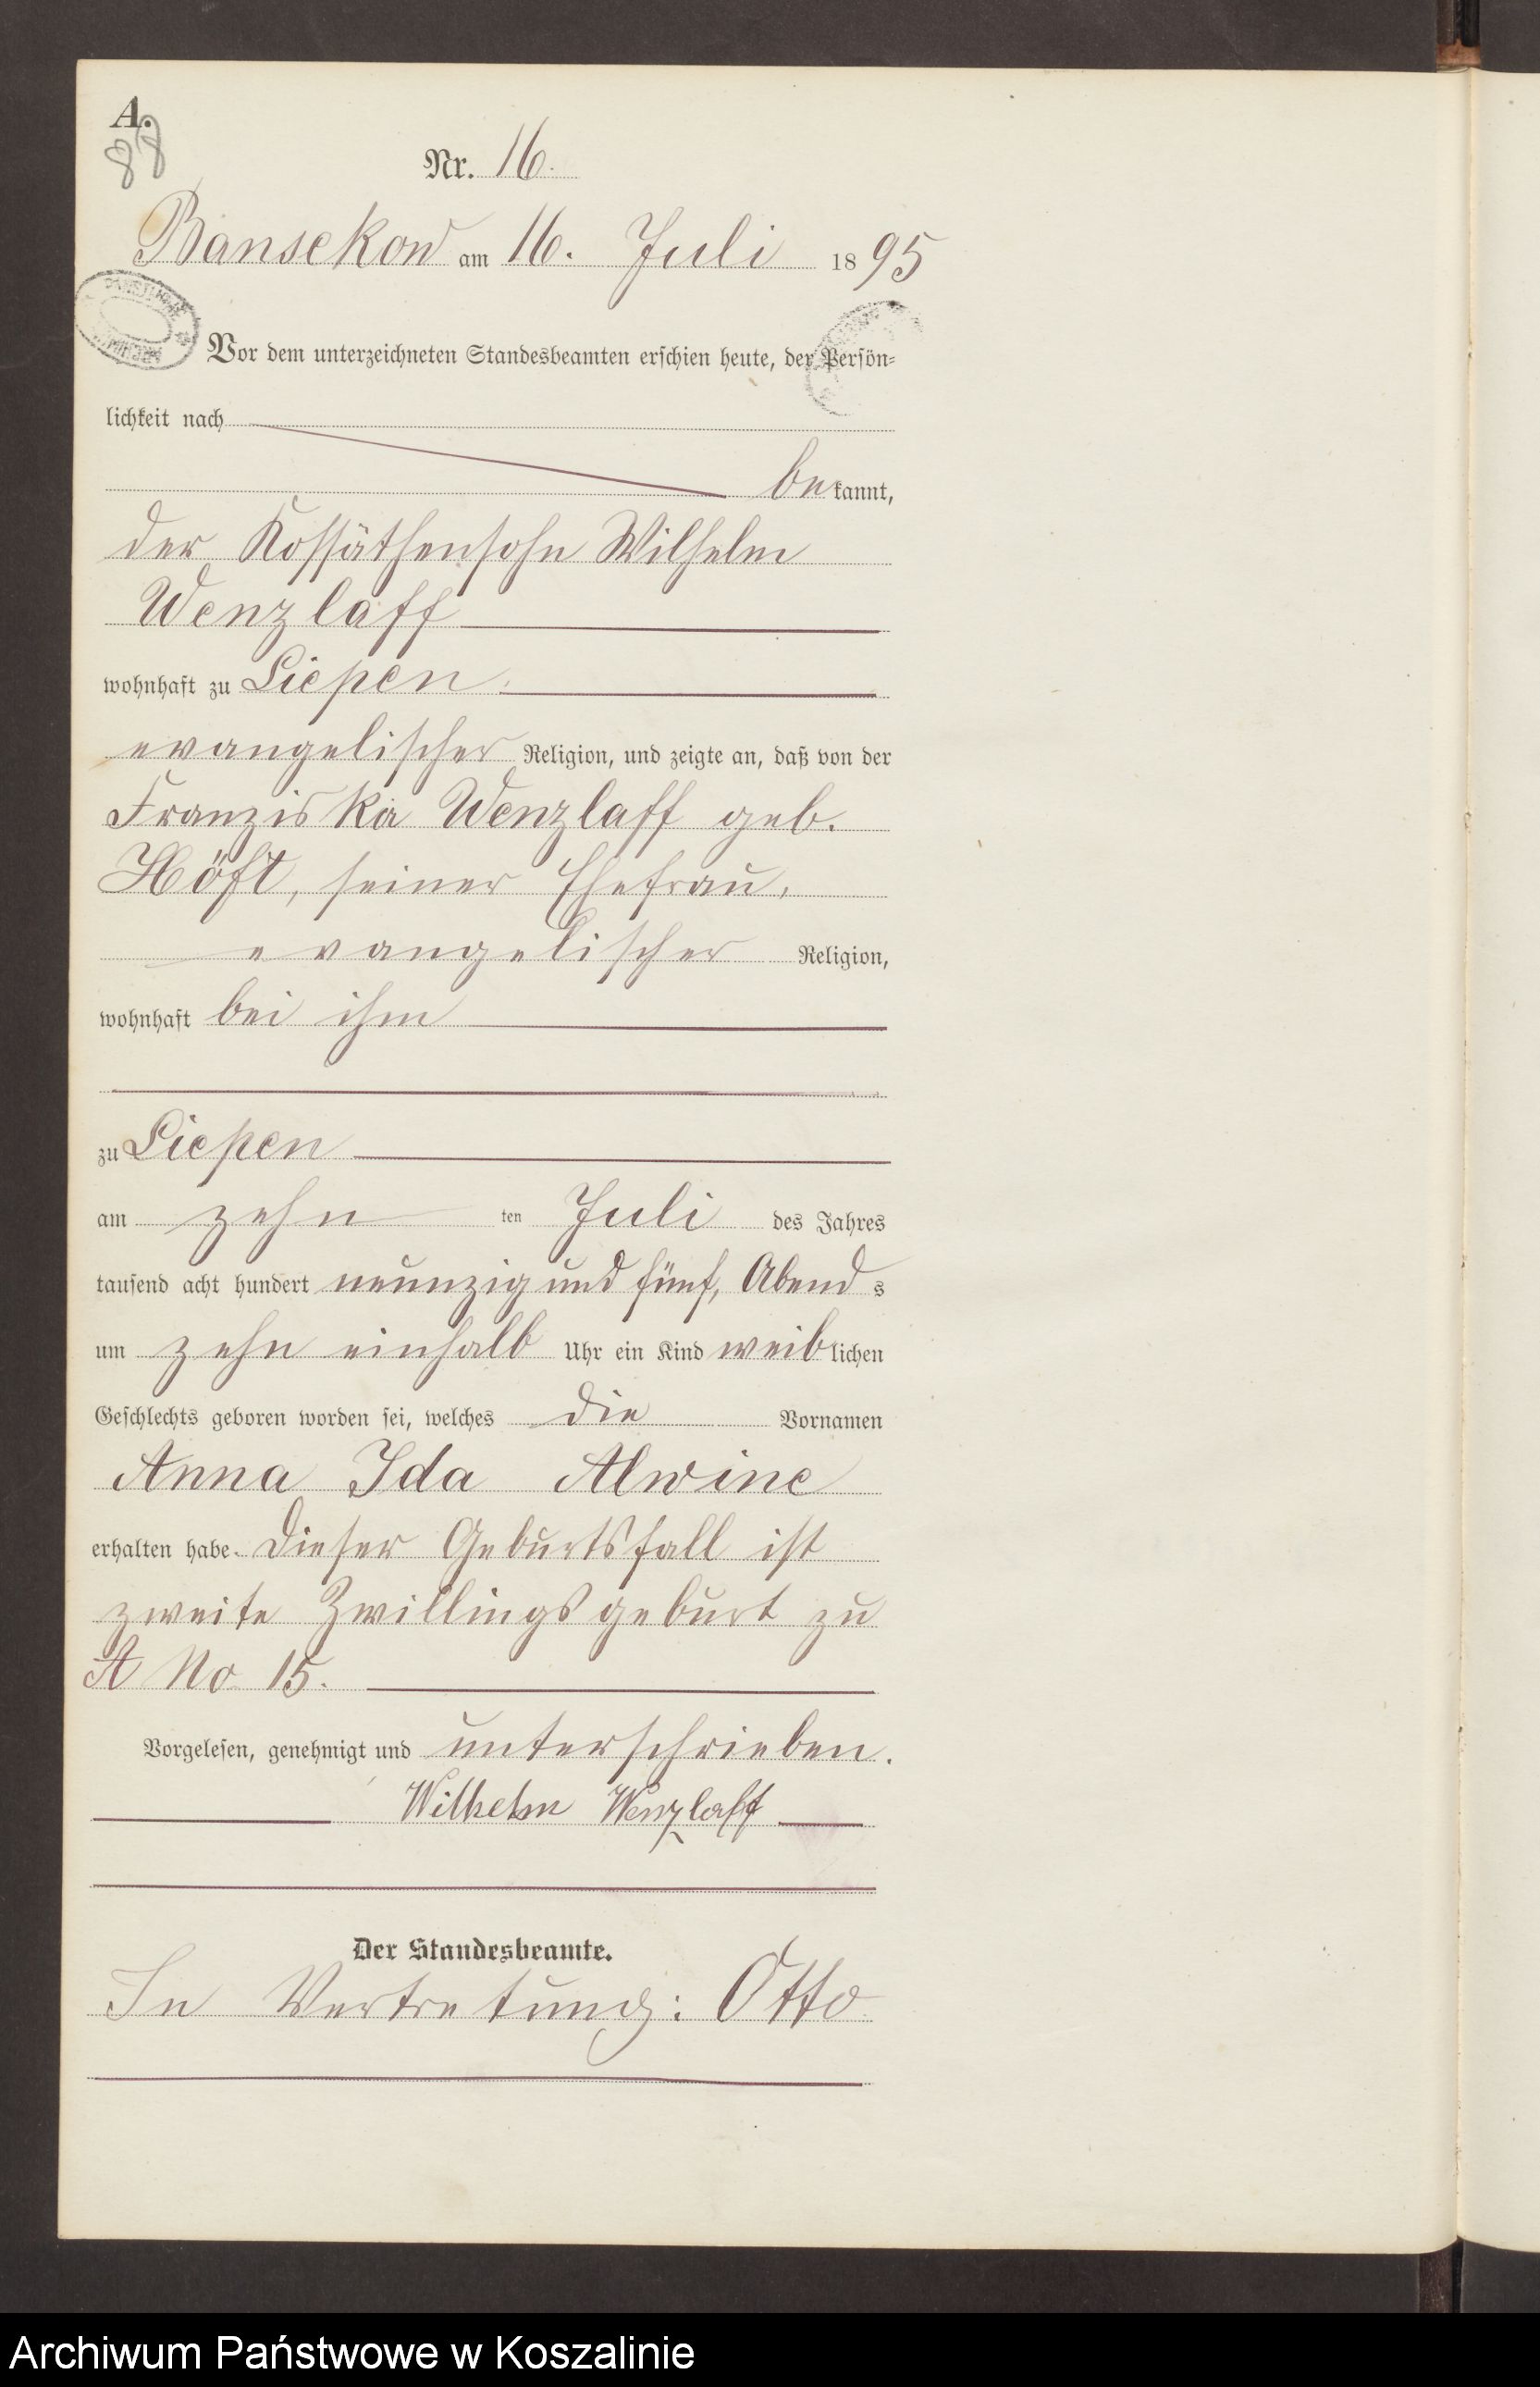 A.
88
Nr. 16.
Bansekow am 16. Juli 1895
Vor dem unterzeichneten Standesbeamten erschien heute, der Persön-
lichkeit nach
bekannt,
der Kossäthensohn Wilhelm
Wenzlaff
wohnhaft zu Liepen
evangelischer Religion, und zeigte an, daß von der
Franziska Wenzlaff geb.
Höft, seiner Ehefrau,
evangelischer Religion,
wohnhaft bei ihm
zu Liepen
am zehn ten Juli des Jahres
tausend acht hundert neunzig und fünf, Abend s
um zehn einhalb Uhr ein Kind weiblichen
Geschlechts geboren worden sei, welches die Vornamen
Anna Ida Alwine
erhalten habe. Dieser Geburtsfall ist
zweite Zwillingsgeburt zu
A No 15.
Vorgelesen, genehmigt und unterschrieben.
Wilhelm Wenzlaff
Der Standesbeamte.
In Vertretung: Otto
Archiwum Państwowe w Koszalinie